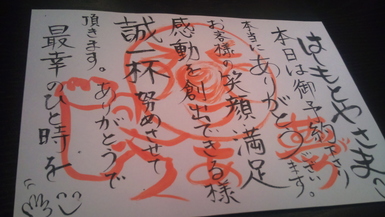 はしもとやさま
本日は御予約下さり
本当にありがとうございます。
お客様の笑顔満足
感動を創出できる様
誠一杯努めさせて
頂きます。ありがとうで
最幸のひと時を